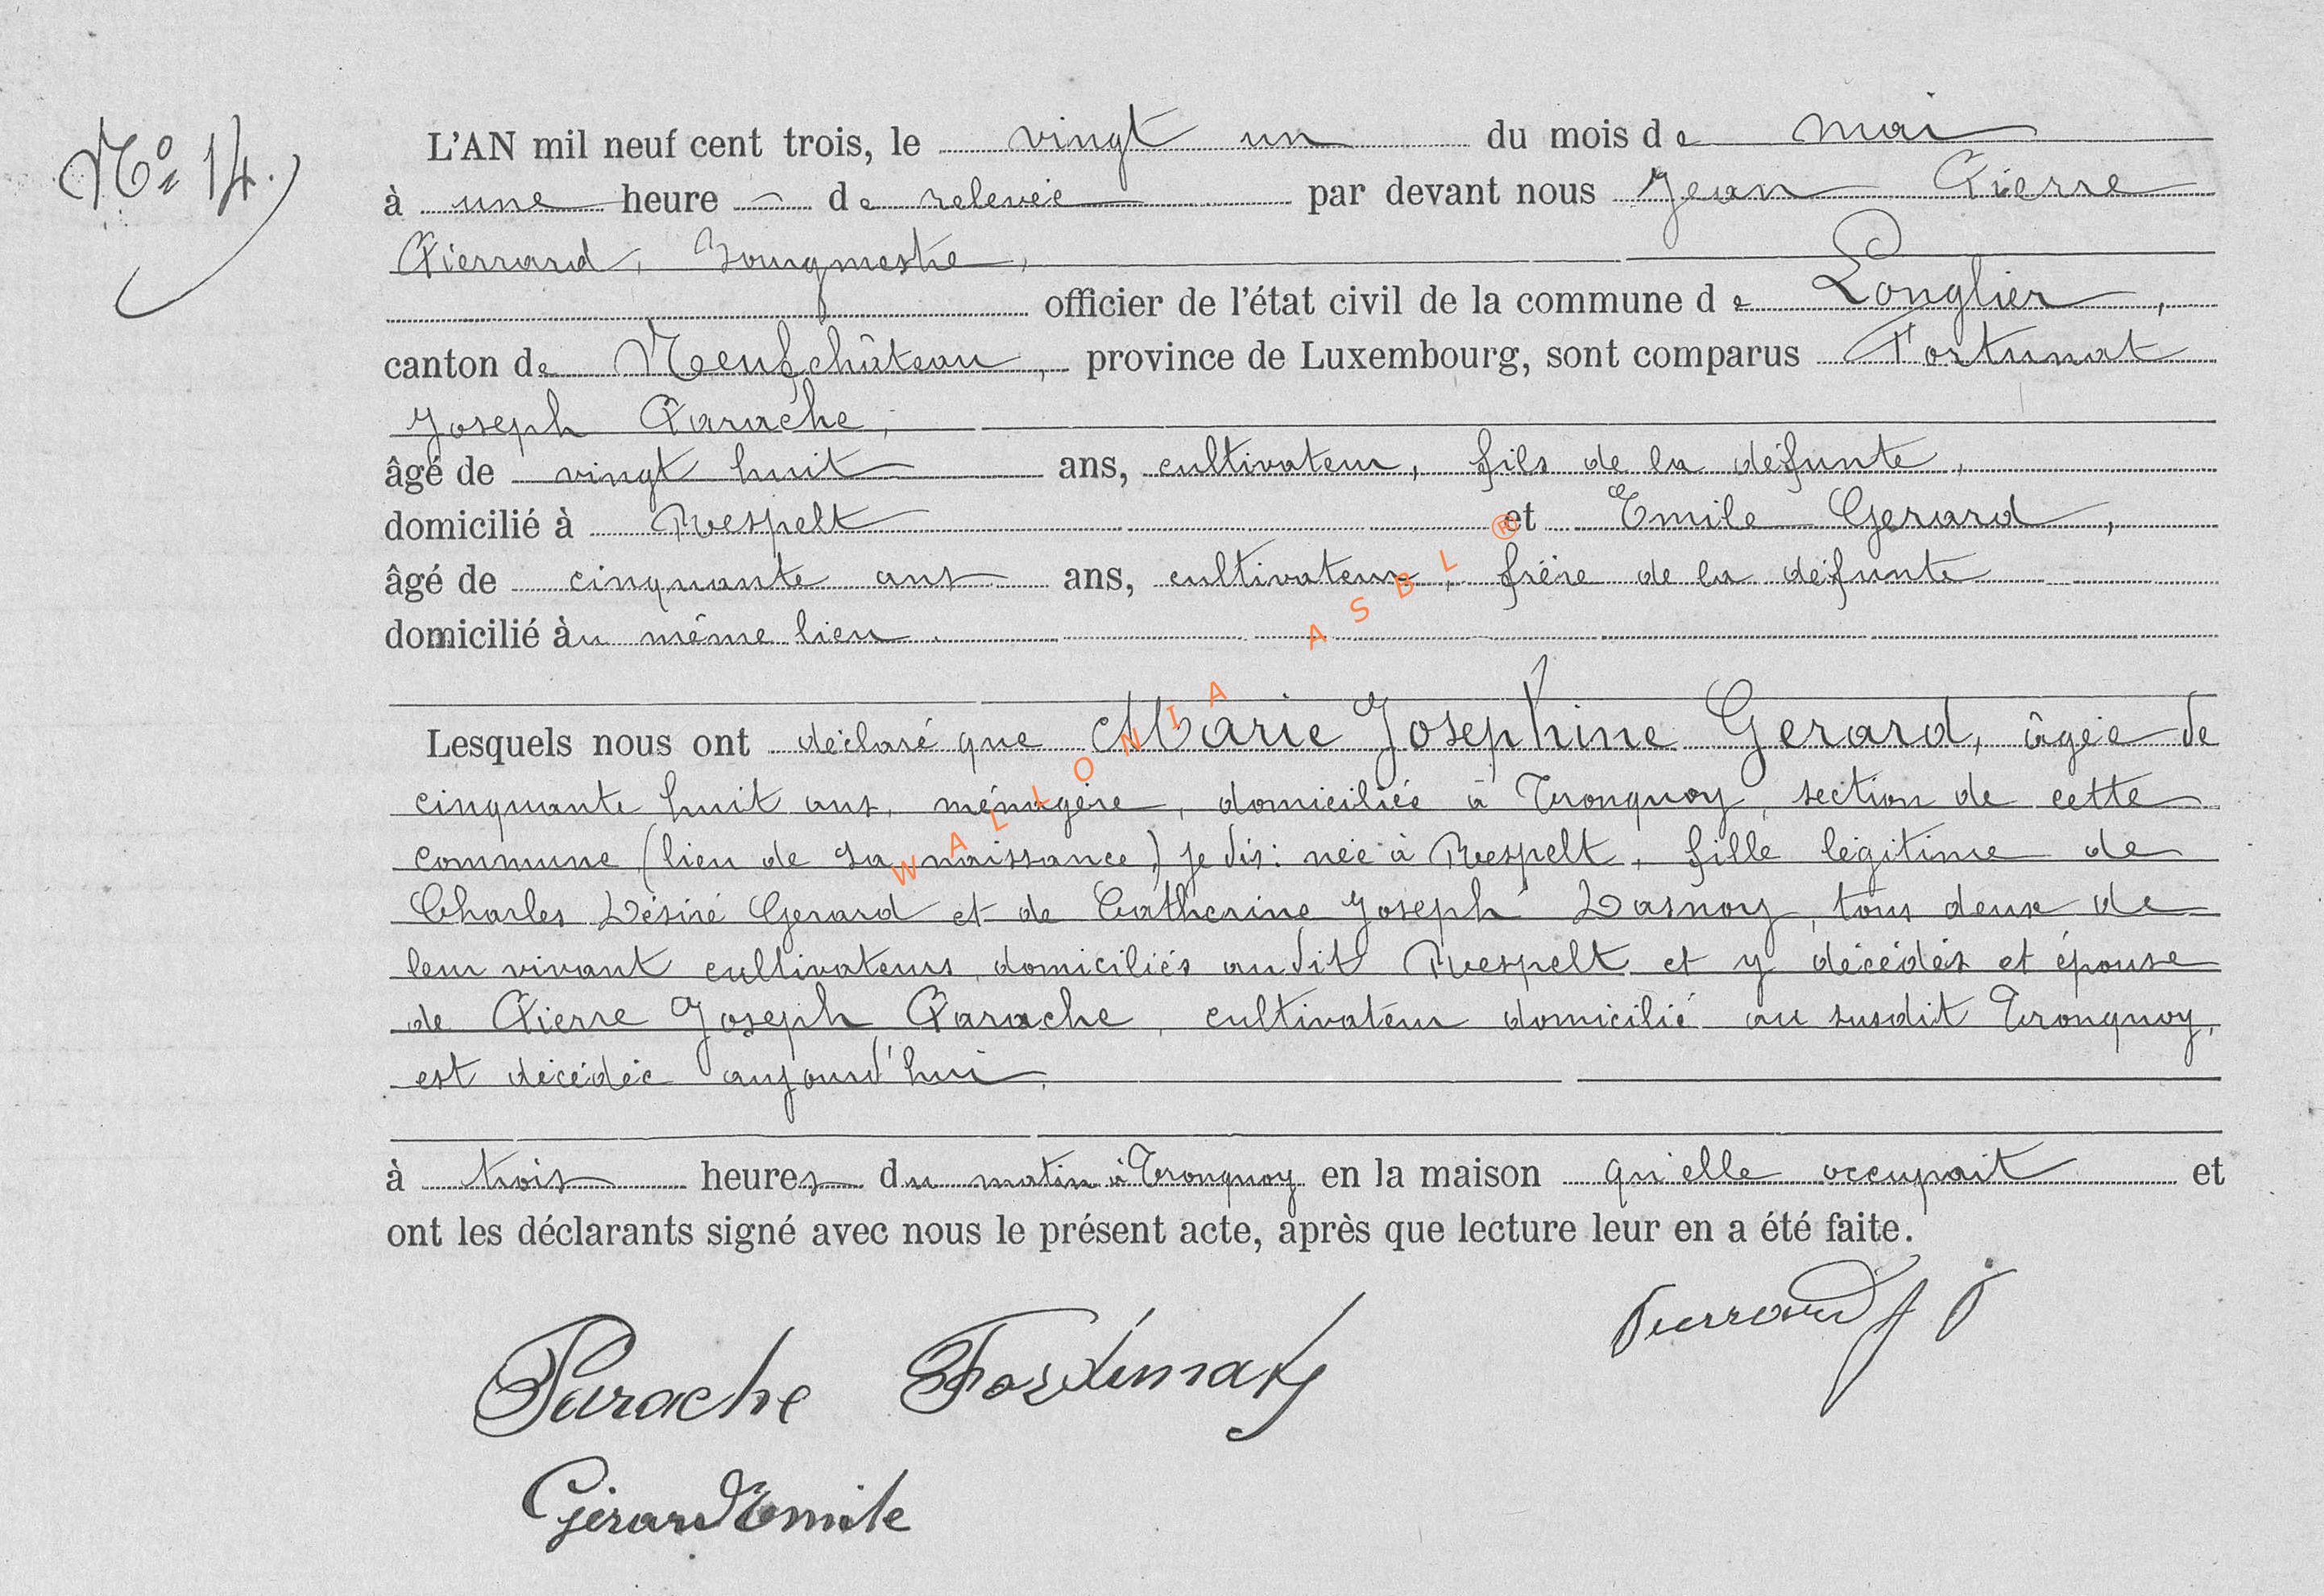 N° 14.
L'AN mil neuf cent trois, le vingt un du mois de mai
à une heure de relevée par devant nous Jean Pierre
Pierrard, Bourgmestre,
officier de l'état civil de la commune de Longlier,
canton de Neufchâteau, province de Luxembourg, sont comparus Fortunat
Joseph Parache,
âgé de vingt huit ans, cultivateur, fils de la défunte,
domicilié à Respelt et Emile Gerard,
âgé de cinquante ans ans, cultivateur, frère de la défunte
domicilié au même lieu
Lesquels nous ont déclaré que Marie Josephine Gerard, âgée de
cinquante huit ans, ménagère, domiciliée à Tronquoy, section de cette
commune (lieu de sa naissance) je dis: née à Respelt, fille légitime de
Charles Désiré Gerard et de Catherine Joseph Dasnoy, tous deux de
leur vivant cultivateurs domiciliés audit Respelt et y décédés et épouse
de Pierre Joseph Parache, cultivateur domicilié au susdit Tronquoy,
est décédée aujourd'hui
à trois heures du matin à Tronquoy en la maison qu'elle occupait et
ont les déclarants signé avec nous le présent acte, après que lecture leur en a été faite.
Pierrard J P
Parache Fortunat
Gérard Emile
WALLONIA ASBL ®